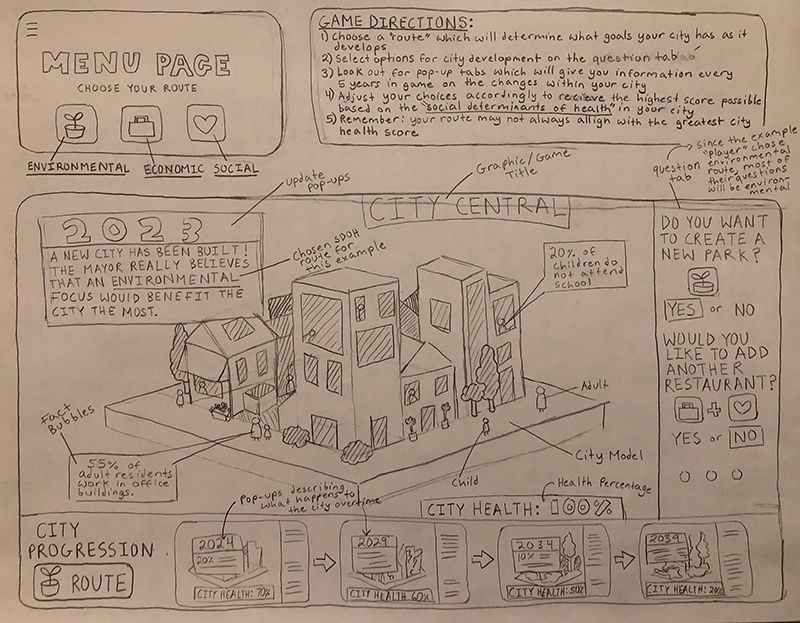 MENU PAGE
CHOOSE YOUR ROUTE
ENVIRONMENTAL ECONOMIC SOCIAL
GAME DIRECTIONS:
1) Choose a "route" which will determine what goals your city has as it
develops
2) Select options for city development on the question tab
3) Look out for pop-up tabs which will give you information every
5 years in game on the changes within your city
4) Adjust your choices accordingly to recieve the highest score possible
based on the "social determinants of health" in your city
5) Remember: your route may not always allign with the greatest city
health score
since the example
"player" chose
environmental
route, most of
their questions
will be environ-
mental
question
tab
update
pop-ups
Graphic/Game
Title
CITY CENTRAL
2023
A NEW CITY HAS BEEN BUILT!
THE MAYOR REALLY BELIEVES
THAT AN ENVIRONMENTAL
FOCUS WOULD BENEFIT THE
CITY THE MOST.
Chosen SDOH
route for
this example
20% of
children do
not attend
school
DO YOU WANT
TO CREATE A
NEW PARK?
YES or NO
WOULD YOU
LIKE TO ADD
ANOTHER
RESTAURANT?
+
YES or NO
Fact
Bubbles
55% of
adult residents
work in office
buildings.
Adult
City Model
Child
Health Percentage
CITY HEALTH: 100%
Pop-ups describing
what happens to
the city overtime
CITY
PROGRESSION
ROUTE
2024
20%
CITY HEALTH: 70%
2029
CITY HEALTH 60%
2034
10%
CITY HEALTH: 50%
2039
CITY HEALTH: 20%